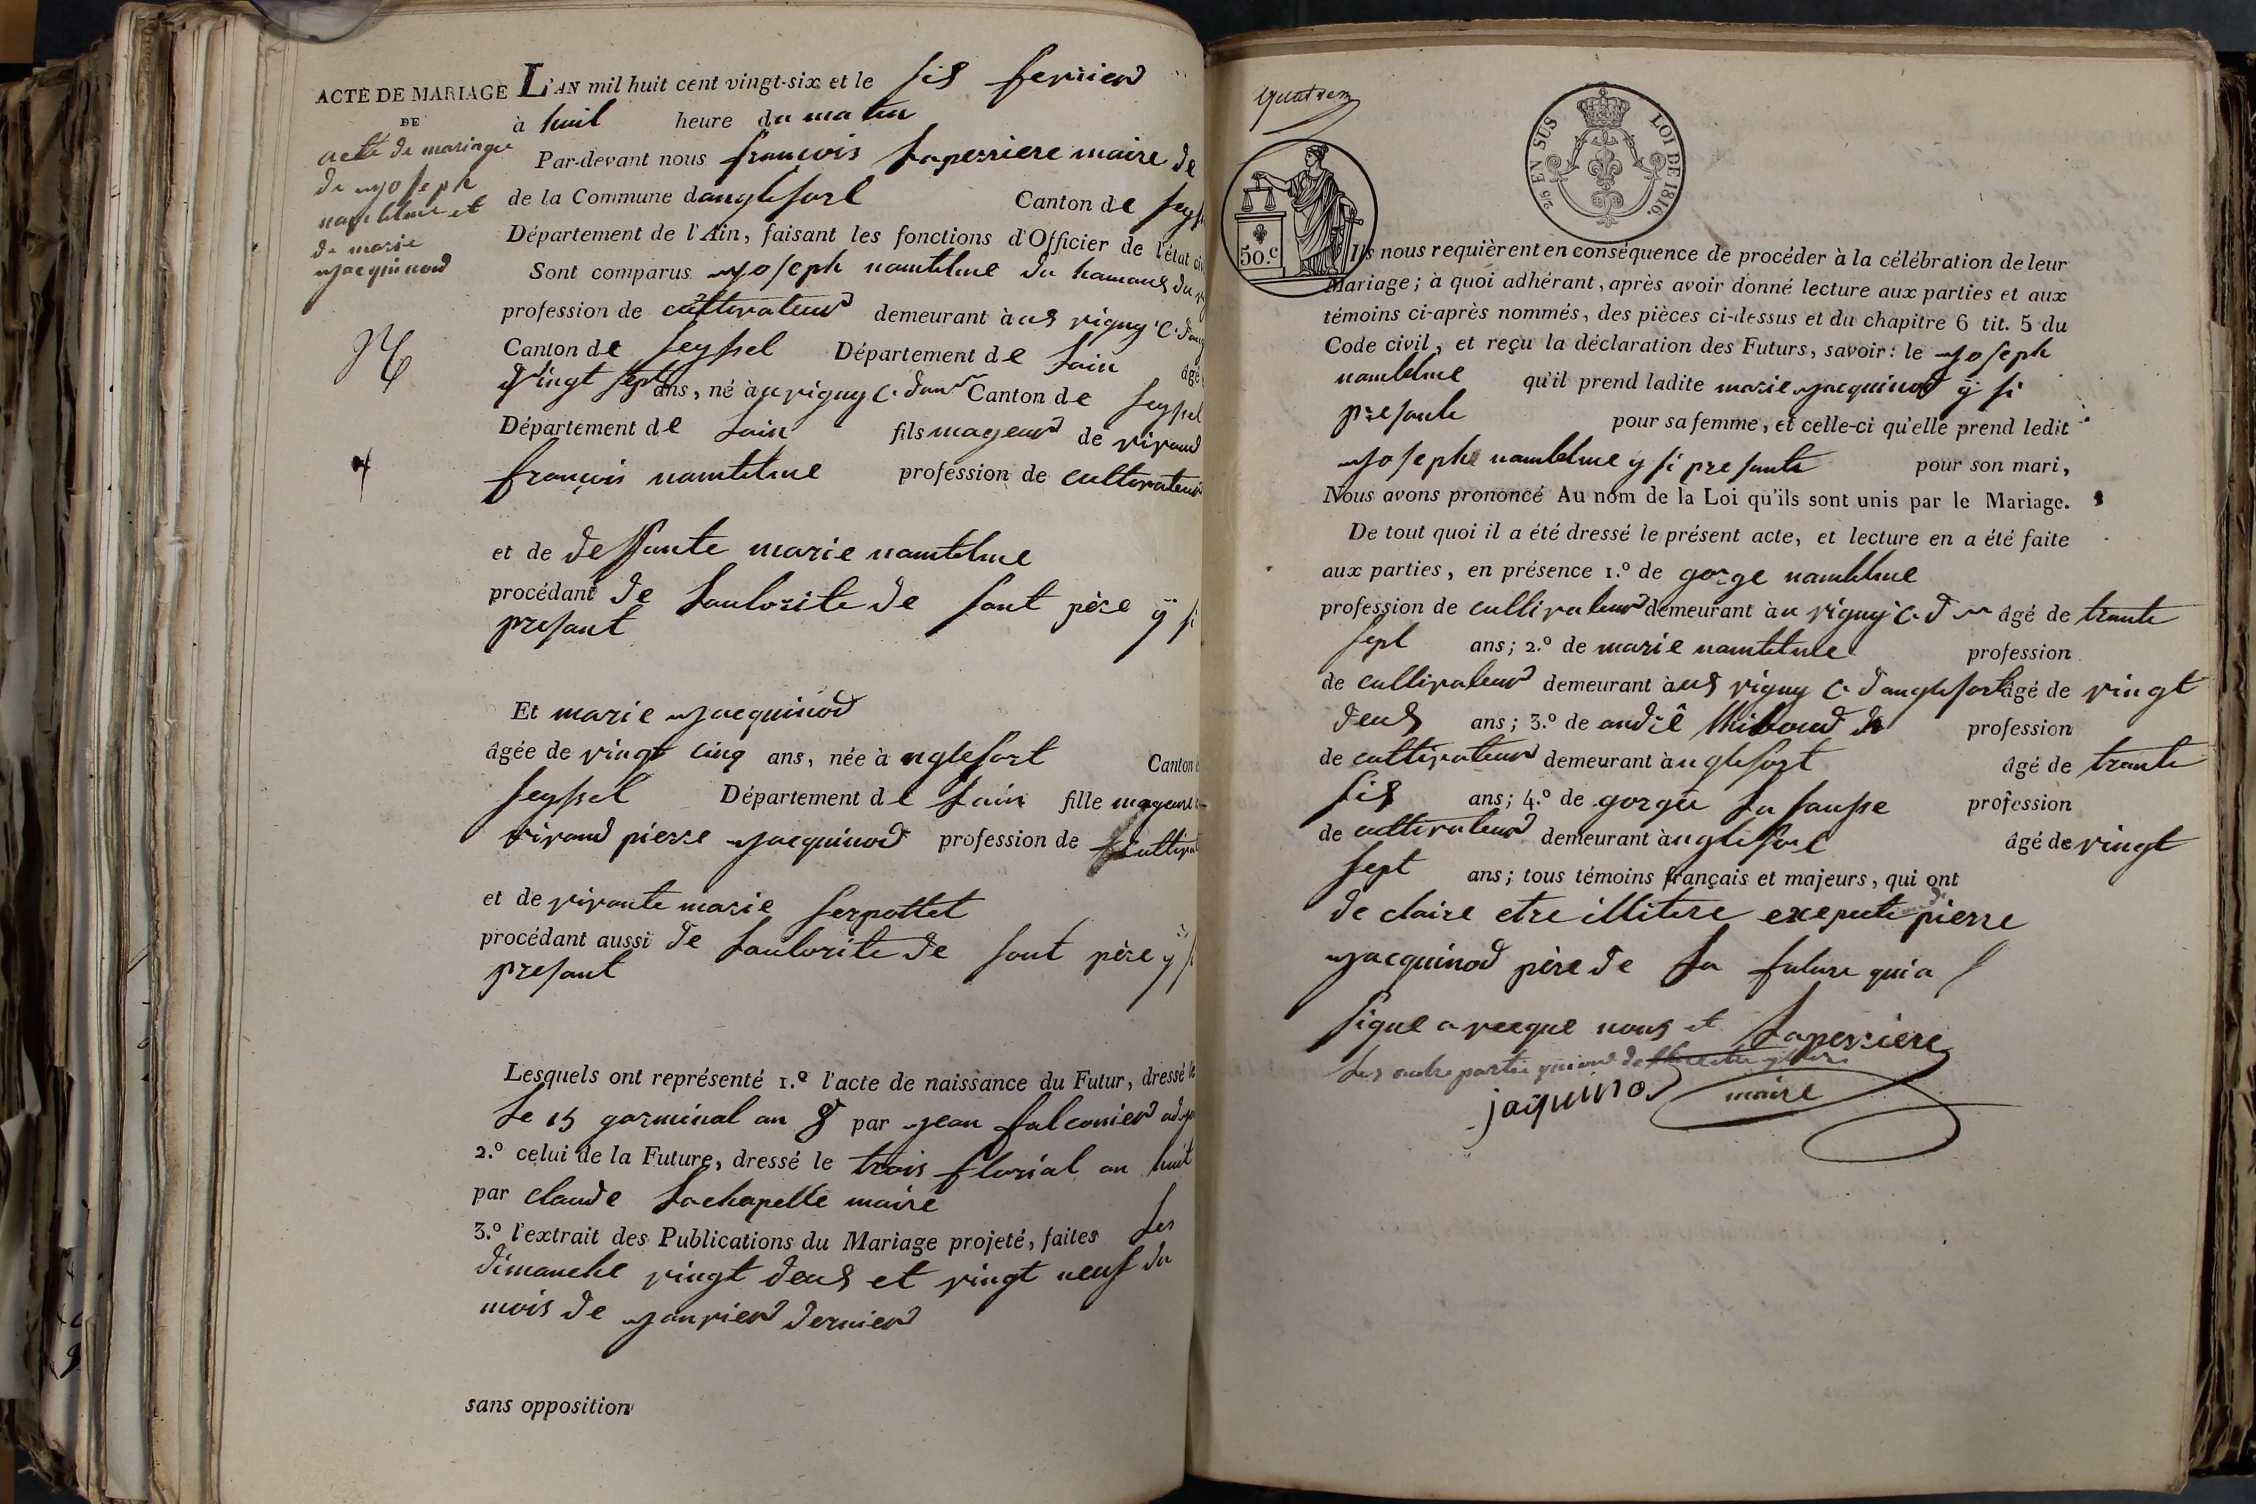 ACTE DE MARIAGE
DE
acte de mariage
de joseph
namtelme et
de marie
jacquinod
L'AN mil huit cent vingt-six et le six fevrier
à huit heure du matin
Par-devant nous françois Laperriere maire de
de la Commune danglefort Canton de Seyss
Département de l'Ain, faisant les fonctions d'Officier de l'état civ
Sont comparus joseph namtelme du hamaux du
profession de cultivateur demeurant à us vigny C. dang
Canton de Seyssel Département de Lain âgé
vingt sept ans, né à u vigny C. dan Canton de Seyssel
Département de Lain fils mageur de vivant
françois namtelme profession de cultivateur
et de deffunte marie namtelme
procédant de Lautorite de sont père y si
presant
Et marie jacquinod
âgée de vingt cinq ans, née à nglefort Canton
Seyssel Département de Lain fille mageure
vivant pierre jacquinod profession de cultiva
et de vivante marie serpottet
procédant aussi de Lautorite de sont père y si
presant
Lesquels ont représenté 1.º l'acte de naissance du Futur, dressé le
Le 15 garminal an 8 par jean falconier adj
2.º celui de la Future, dressé le trois florial an huit
par claude Lachapelle maire
3.º l'extrait des Publications du Mariage projeté, faites Les
dimanche vingt deux et vingt neuf du
mois de janvier dernier
sans opposition
2/5 EN SUS LOI DE 1816.
50.C
Ils nous requièrent en conséquence de procéder à la célébration de leur
Mariage; à quoi adhérant, après avoir donné lecture aux parties et aux
témoins ci-après nommés, des pièces ci-dessus et du chapitre 6 tit. 5 du
Code civil, et reçu la déclaration des Futurs, savoir: le joseph
namtelme qu'il prend ladite marie jacquinod y si
presante pour sa femme, et celle-ci qu'elle prend ledit
joseph namtelme y si presante pour son mari,
Nous avons prononcé Au nom de la Loi qu'ils sont unis par le Mariage.
De tout quoi il a été dressé le présent acte, et lecture en a été faite
aux parties, en présence 1.º de gorge namtelme
profession de cultivateur demeurant à u vigny C. d âgé de trante
sept ans; 2.º de marie namtelme profession
de cultivateur demeurant à us vigny C. danglefort âgé de vingt
deux ans; 3.º de andrê thiboud profession
de cultivateur demeurant à nglefort âgé de trante
six ans; 4.º de gorge La sausse profession
de cultivateur demeurant à nglefort âgé de vingt
sept ans; tous témoins français et majeurs, qui ont
de claire etre illitere exepute pierre
jacquinod père de La future qui a
signe avecque nous et Laperriere
Les autre partie qui ont
jaquinod maire